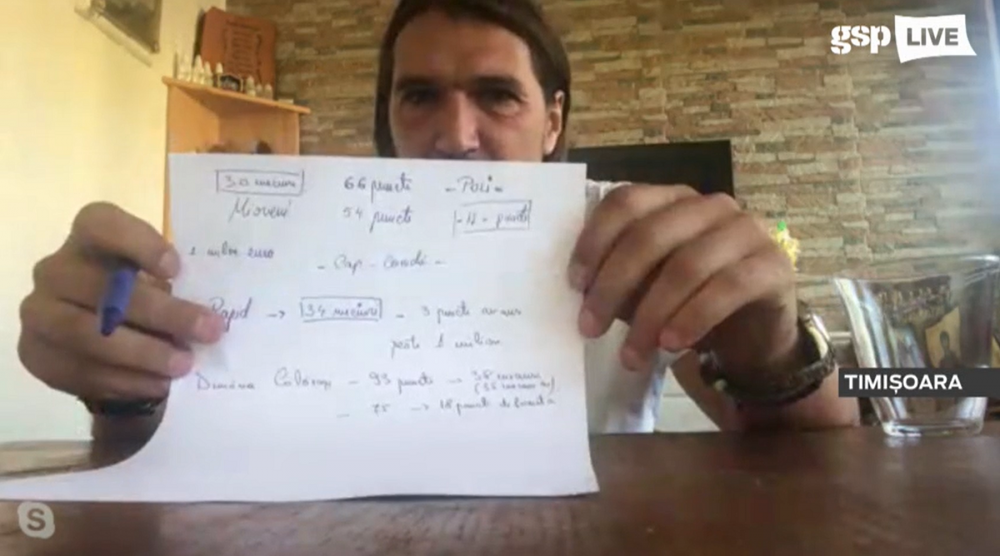 gsp LIVE
30 meciuri 66 puncte - Poli -
Mioveni 54 puncte - 12 - puncte
1 milion euro - Cap - Coadă -
Rapid → 34 meciuri - 3 puncte avans
peste 1 milion
Dunărea Călărași - 93 puncte → 38 meciuri
- 75 → 18 puncte
TIMIȘOARA
S